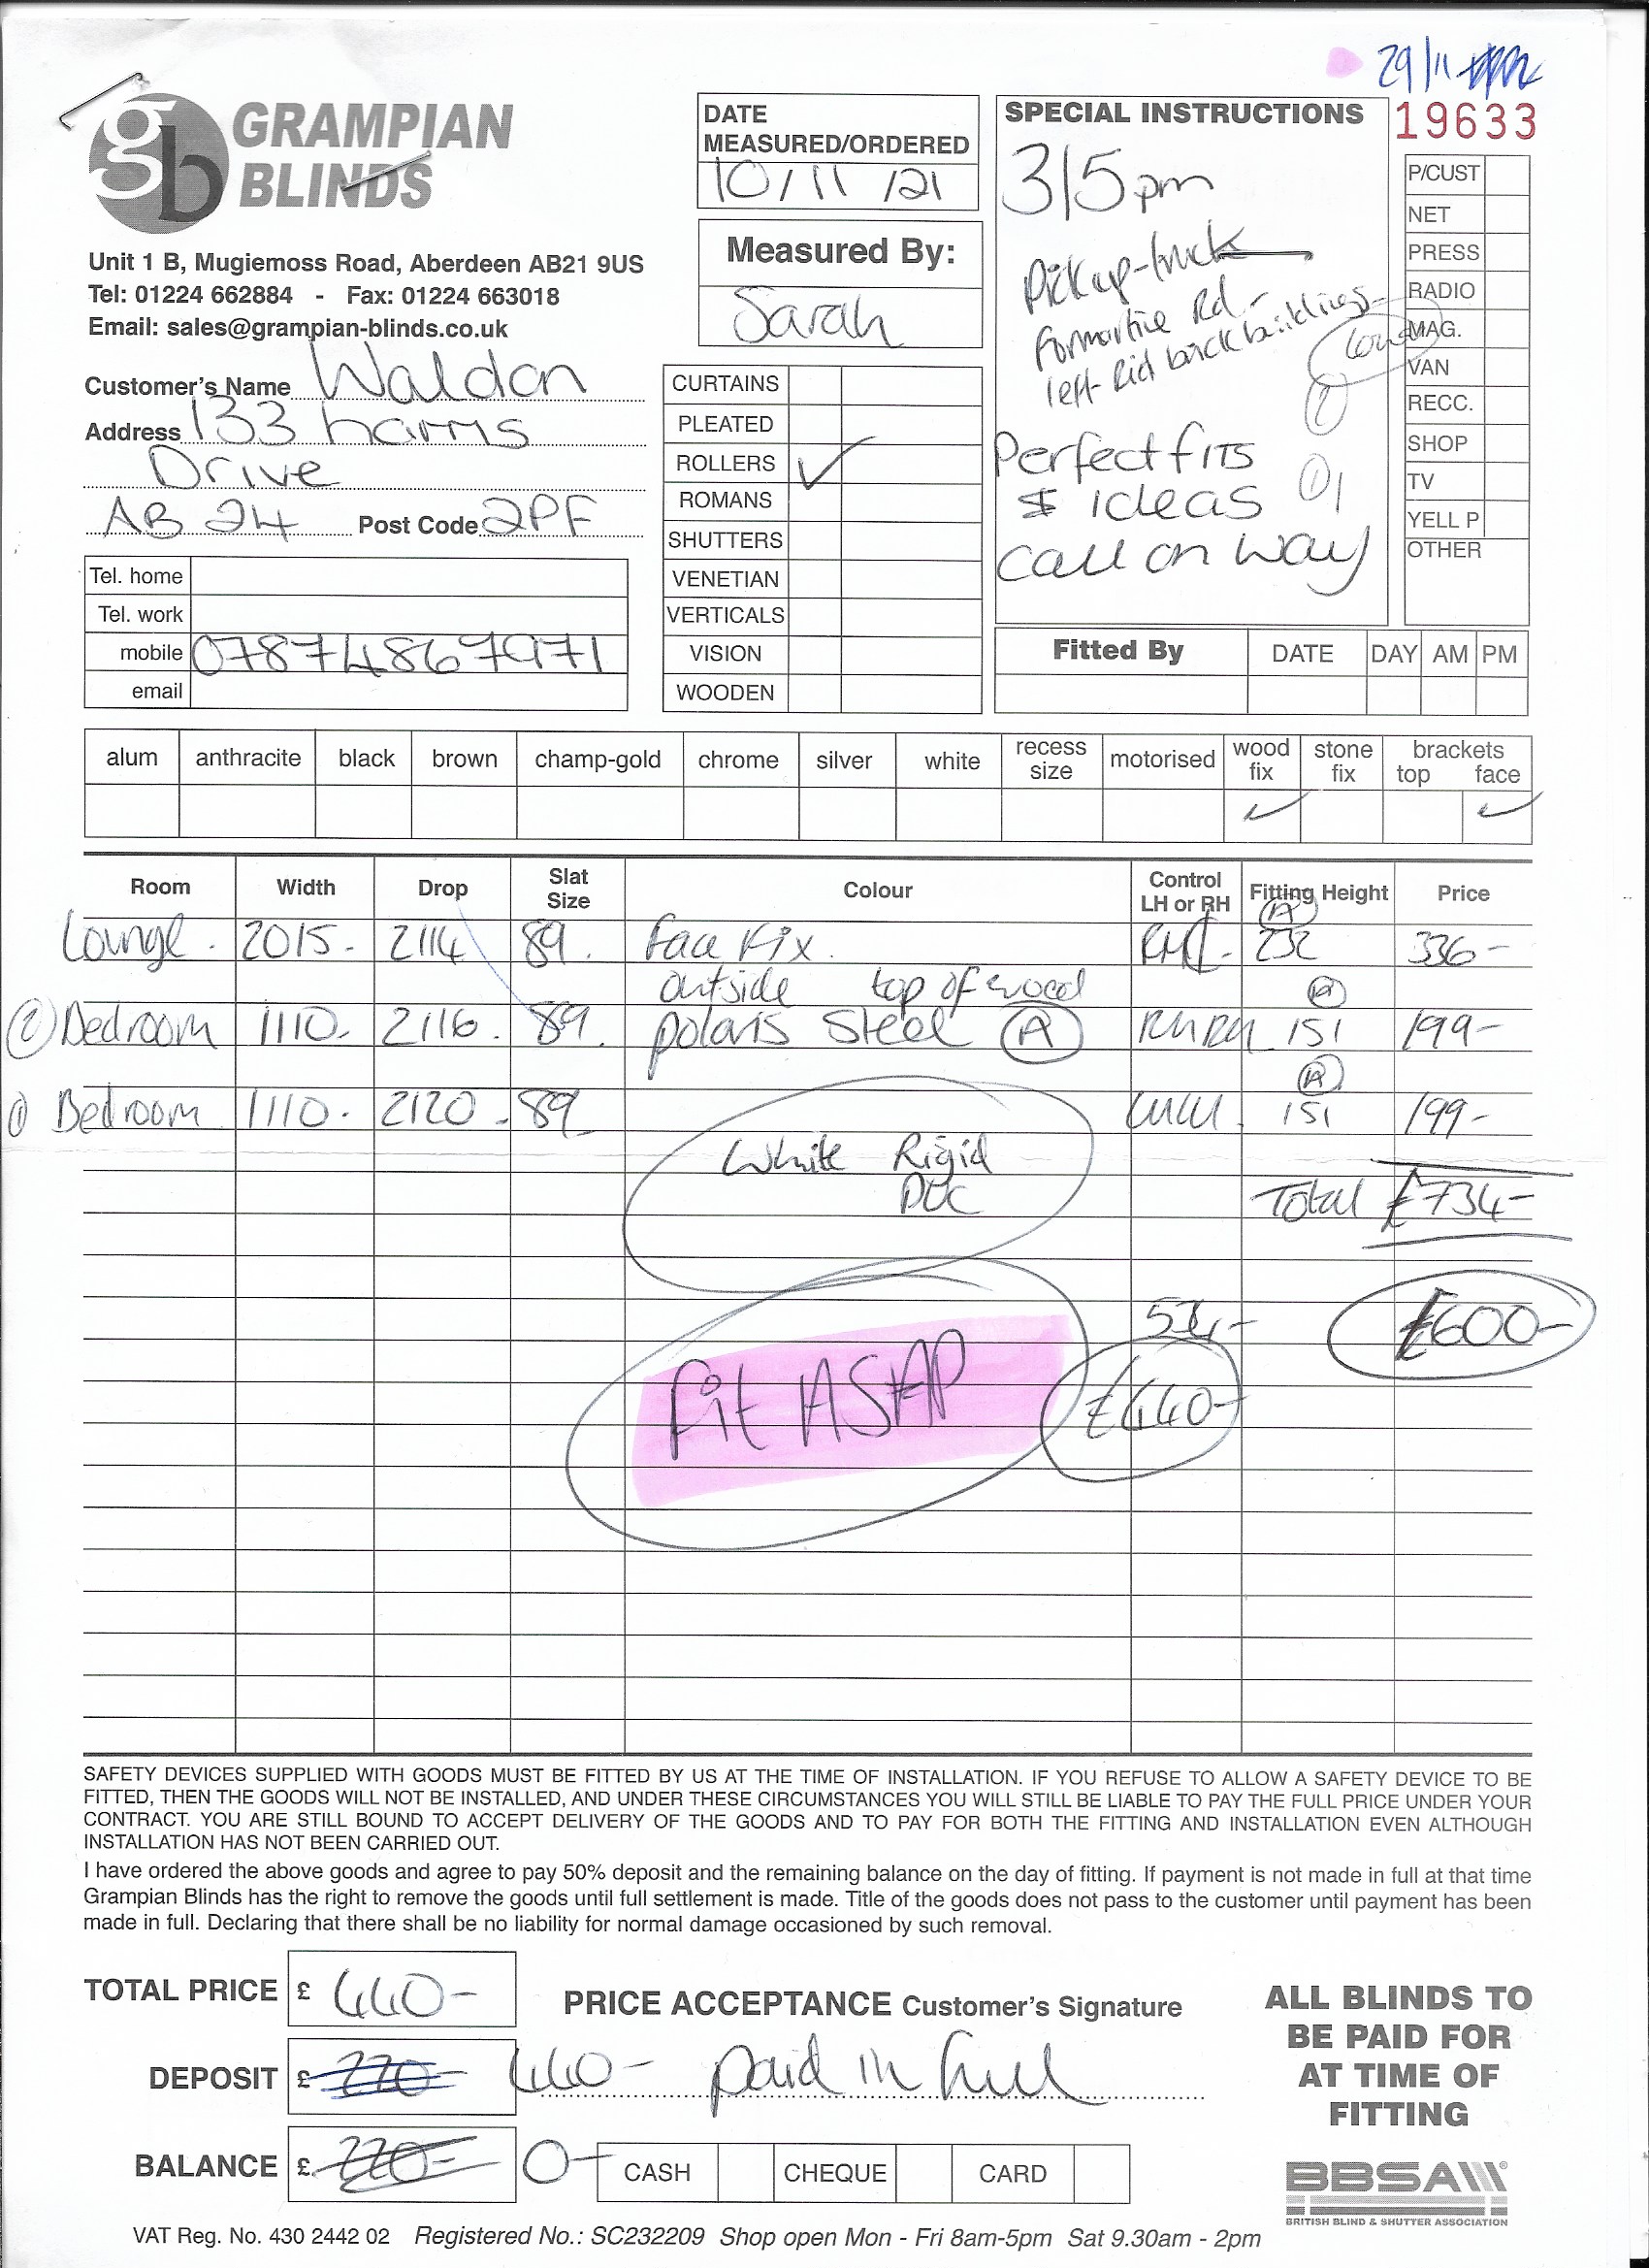 29/11
19633
GRAMPIAN
BLINDS
Unit 1 B, Mugiemoss Road, Aberdeen AB21 9US
Tel: 01224 662884 - Fax: 01224 663018
Email: sales@grampian-blinds.co.uk
Customer's Name Waldon
Address 133 harris
Drive
AB 24 Post Code 2PF
Tel. home
Tel. work
mobile 07874867971
email
DATE
MEASURED/ORDERED
10/11/21
Measured By:
Sarah
CURTAINS
PLEATED
ROLLERS ✓
ROMANS
SHUTTERS
VENETIAN
VERTICALS
VISION
WOODEN
SPECIAL INSTRUCTIONS
3/5pm
Pickup-truck
Formartine Rd -
left back buildings
Perfect fits
ideas
call on way
P/CUST
NET
PRESS
RADIO
MAG.
VAN
RECC.
SHOP
TV
YELL P
OTHER
Fitted By DATE DAY AM PM
alum anthracite black brown champ-gold chrome silver white recess size motorised wood fix stone fix brackets top face
✓ ✓
Room Width Drop Slat Size Colour Control LH or RH Fitting Height Price
Lounge. 2015. 2114 89. Face Fix. 232 336-
outside top of wood
② Bedroom 1110. 2116. 89. polaris Steel Ⓐ RHRH 151 199-
① Bedroom 1110. 2120. 89 151 199-
White Rigid
PVC
Total £734-
£600-
Fit ASAP
£440-
SAFETY DEVICES SUPPLIED WITH GOODS MUST BE FITTED BY US AT THE TIME OF INSTALLATION. IF YOU REFUSE TO ALLOW A SAFETY DEVICE TO BE
FITTED, THEN THE GOODS WILL NOT BE INSTALLED, AND UNDER THESE CIRCUMSTANCES YOU WILL STILL BE LIABLE TO PAY THE FULL PRICE UNDER YOUR
CONTRACT. YOU ARE STILL BOUND TO ACCEPT DELIVERY OF THE GOODS AND TO PAY FOR BOTH THE FITTING AND INSTALLATION EVEN ALTHOUGH
INSTALLATION HAS NOT BEEN CARRIED OUT.
I have ordered the above goods and agree to pay 50% deposit and the remaining balance on the day of fitting. If payment is not made in full at that time
Grampian Blinds has the right to remove the goods until full settlement is made. Title of the goods does not pass to the customer until payment has been
made in full. Declaring that there shall be no liability for normal damage occasioned by such removal.
TOTAL PRICE £ 440-
PRICE ACCEPTANCE Customer's Signature
DEPOSIT £ 220- 440- paid in full
BALANCE £ 220- 0-
CASH CHEQUE CARD
ALL BLINDS TO
BE PAID FOR
AT TIME OF
FITTING
BBSA
BRITISH BLIND & SHUTTER ASSOCIATION
VAT Reg. No. 430 2442 02 Registered No.: SC232209 Shop open Mon - Fri 8am-5pm Sat 9.30am - 2pm